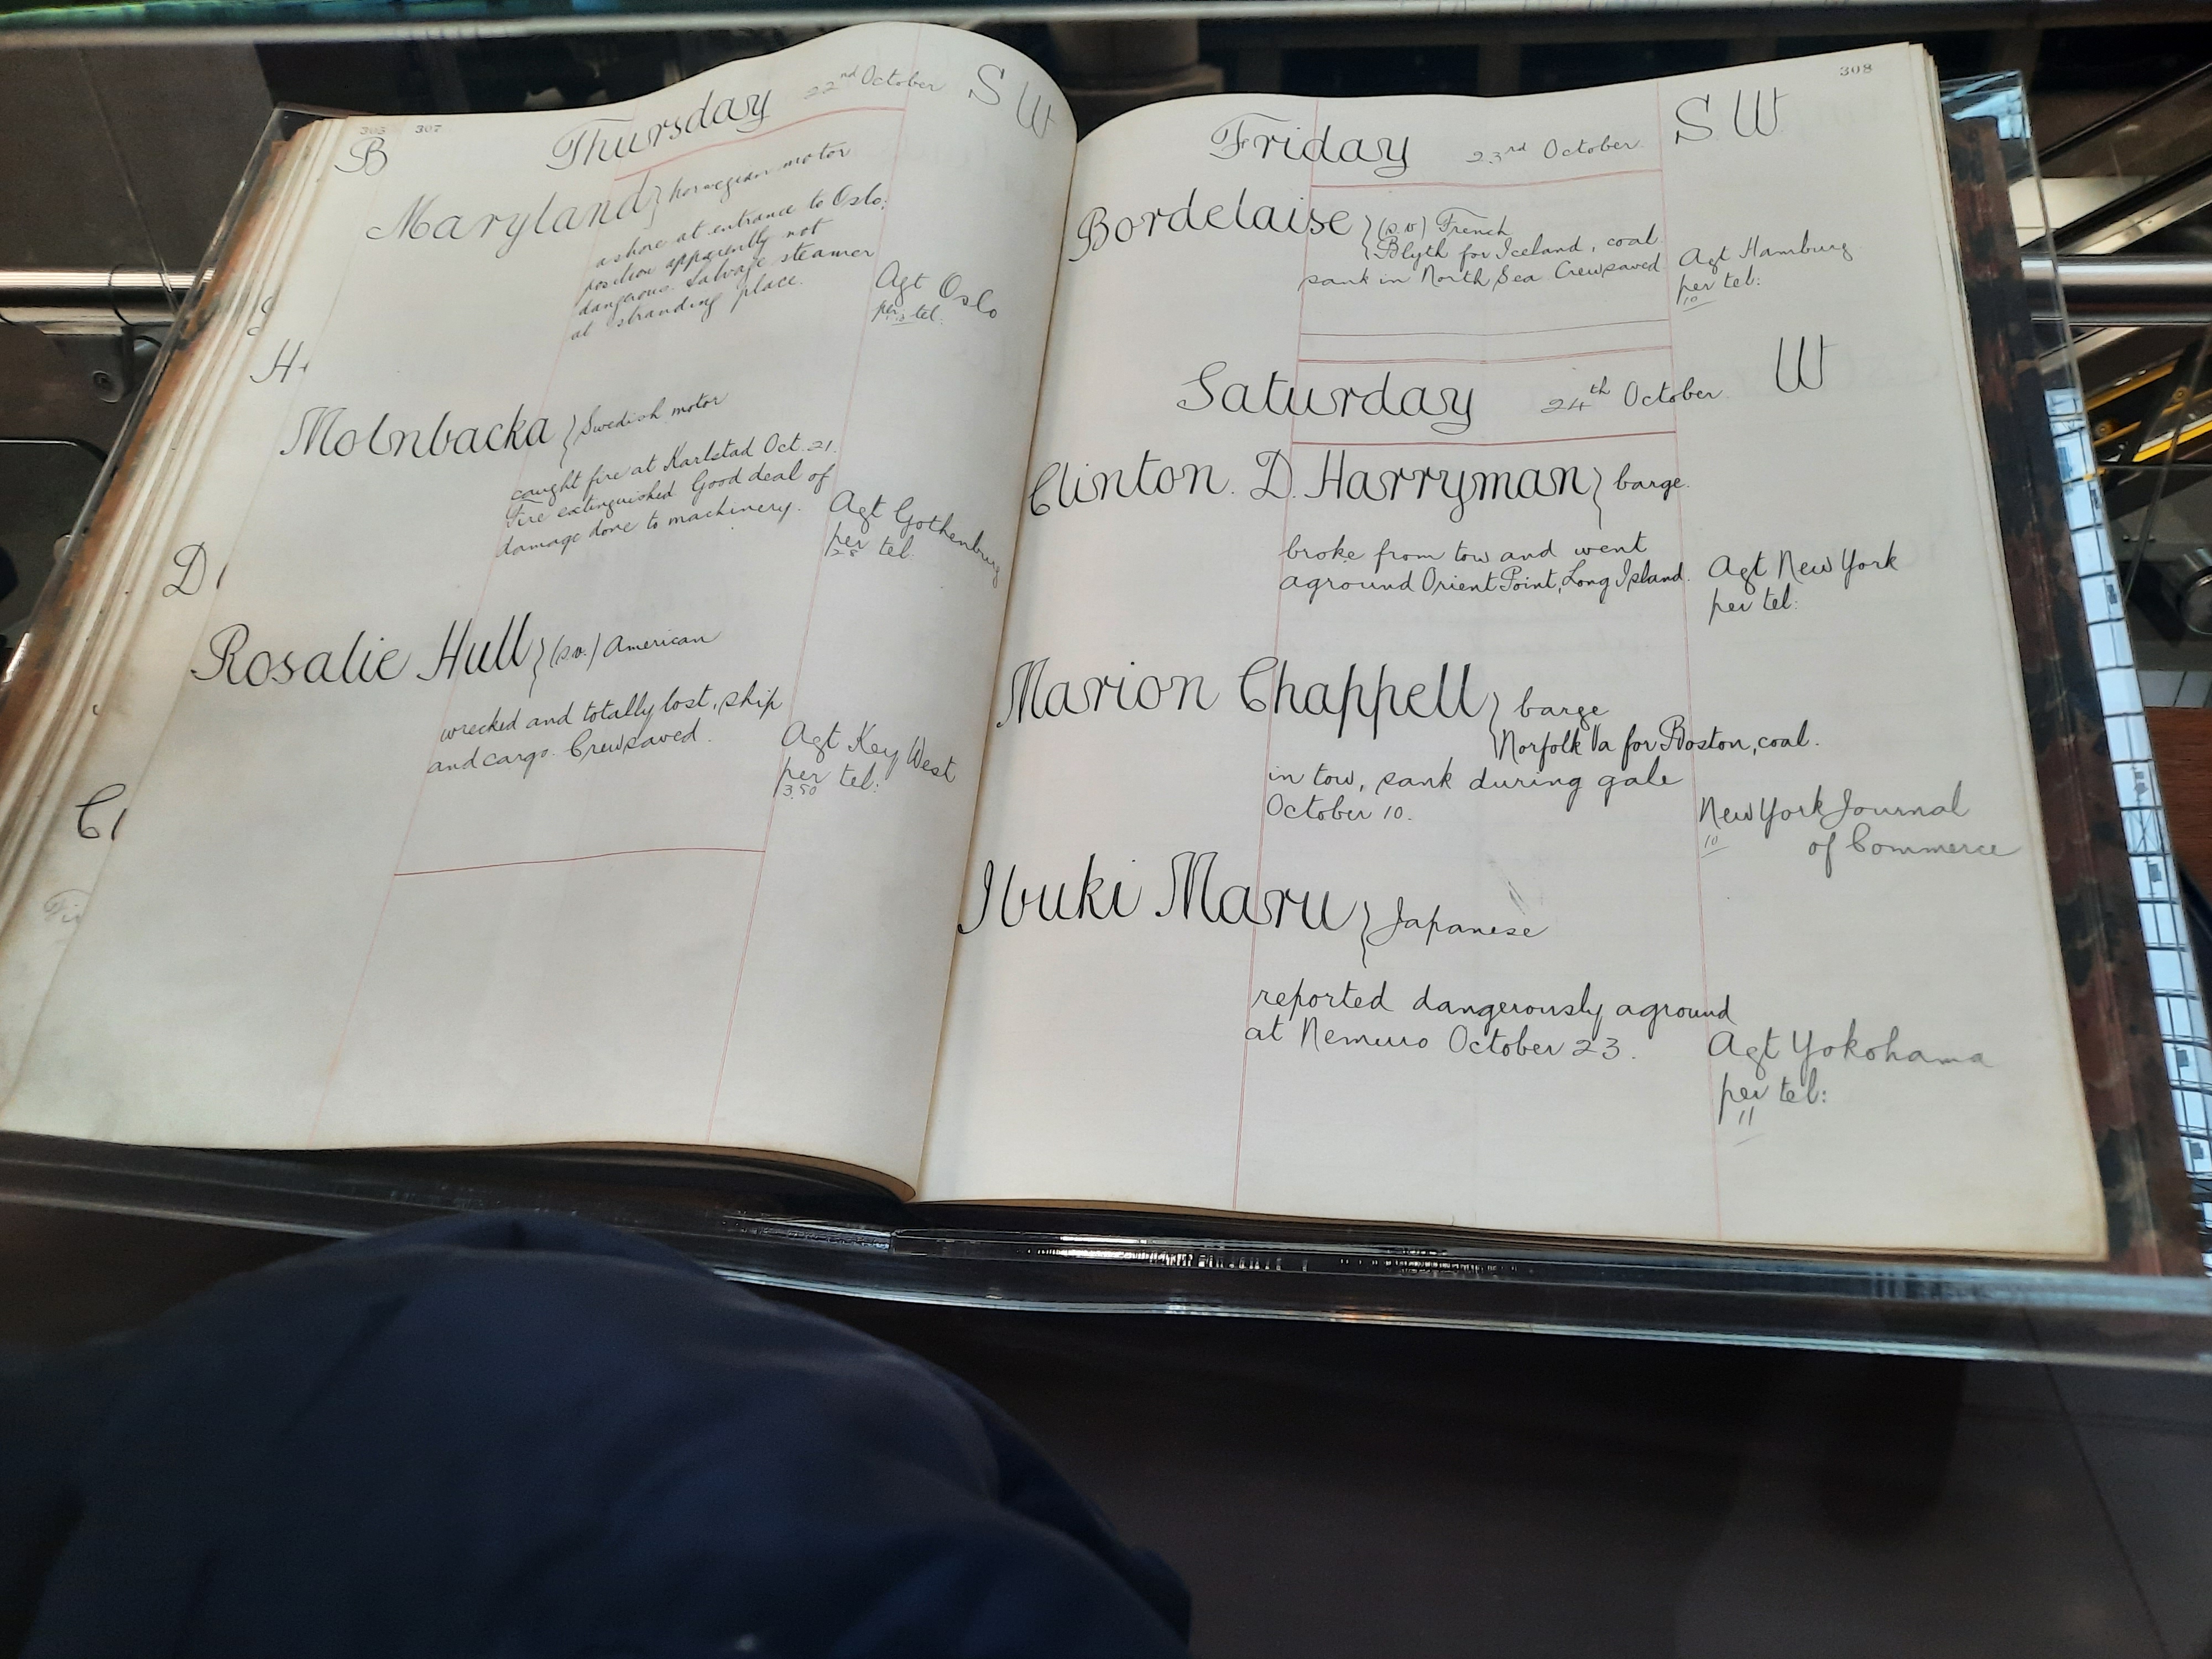 307
B
Thursday 22nd October S W
Maryland } Norwegian motor
ashore at entrance to Oslo;
position apparently not
dangerous. Salvage steamer
at stranding place.
Agt Oslo
per tel:
H
Molnbacka } Swedish motor
caught fire at Karlstad Oct. 21.
Fire extinguished Good deal of
damage done to machinery.
Agt Gothenburg
per tel:
D
Rosalie Hull } (s.v.) American
wrecked and totally lost, ship
and cargo. Crew saved.
Agt Key West
per tel:
3.50
C
308
Friday 23rd October S W
Bordelaise } (s.v) French
Blyth for Iceland, coal
sank in North Sea Crew saved
Agt Hamburg
per tel:
10
Saturday 24th October W
Clinton. D. Harryman } barge.
broke from tow and went
aground Orient Point, Long Island.
Agt New York
per tel:
Marion Chappell } barge
Norfolk Va for Boston, coal.
in tow, sank during gale
October 10.
New York Journal
10 of Commerce
Ibuki Maru } Japanese
reported dangerously aground
at Nemuro October 23.
Agt Yokohama
per tel:
11